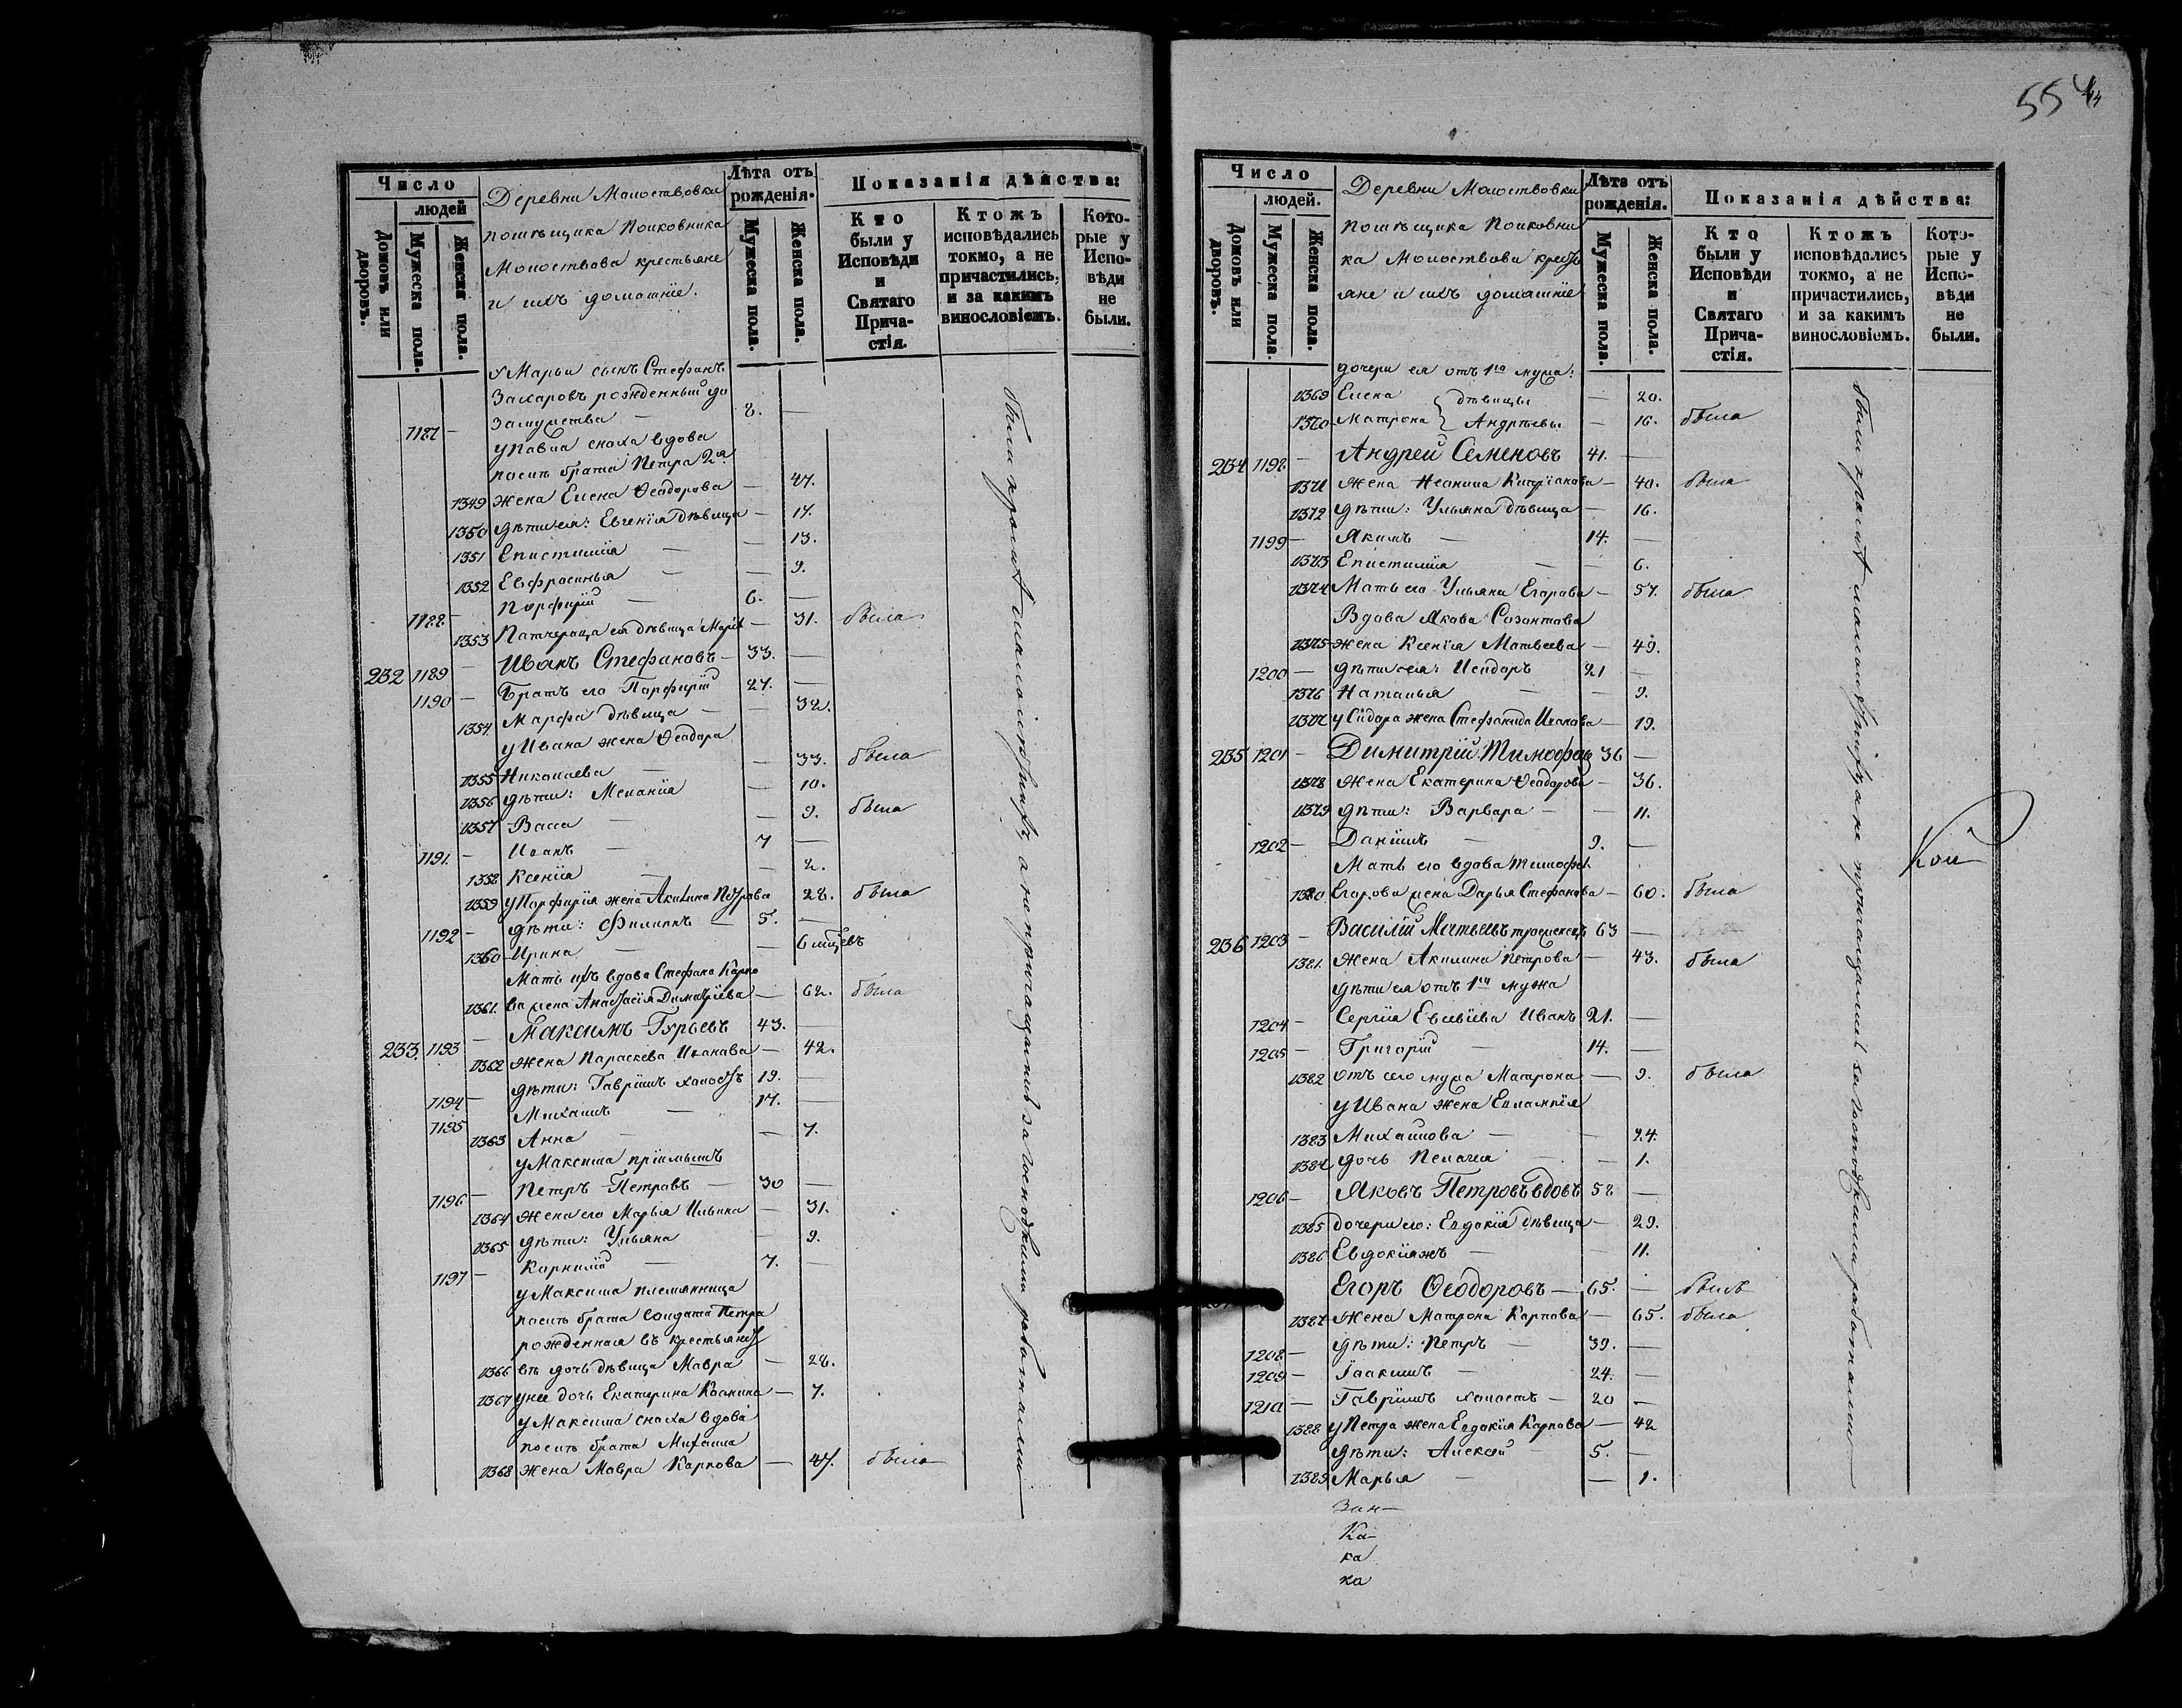 554
Число
людей
Домовъ или дворовъ.
Мужеска пола.
Женска пола.
Деревни Молоствовки
помѣщика Полковника
Молоствова крестьяне
и ихъ домашніе.
Лѣта отъ рожденія.
Мужеска пола.
Женска пола.
Показанія дѣйства:
Кто были у Исповѣди и Святаго Причастія.
Ктожъ исповѣдались токмо, а не причастились, и за какимъ винословіемъ.
Которые у Исповѣди не были.
у Марьи сынъ Стефанъ
Захаровъ рожденный до
1187 – замужства – 8. –
у Павла сноха вдова
послѣ брата Петра 2го
1349 жена Елена Ѳеодорова – 47.
1350 дѣти ея: Евгенія дѣвица – 17.
1351 Епистимія – – 13.
1352 Евфросинья – – 9.
1188 – Порфирій – 6. –
1353 Патчерица ея дѣвица Марія – 31. была
232 1189 – Иванъ Стефановъ – 33. –
1190 – Братъ его Порфирій 27. –
1354 Марфа дѣвица – – 32.
у Ивана жена Ѳеодора
1355 Николаева – – 33. была
1356 дѣти: Меланія – 10.
1357 Васса – – 9. была
1191. – Иоанъ – 7 –
1358 Ксенія – – 2.
1359 у Порфирія жена Акилина Петрова 28. была
1192 – дѣти: Филипъ – 5. –
1360 Ирина – – 6 мѣцевъ
Мать ихъ вдова Стефана Карпо
1361. ва жена Анастасія Димитріева – 62. была
233. 1193 – Максимъ Гурьевъ 43. –
1362 жена Параскева Иванова – 42.
1194 – дѣти: Гавріилъ холостъ 19. –
1195 Михаилъ – 17. –
1363 Анна – – 7.
у Максима пріимышъ
1196 – Петръ Петровъ – 30 –
1364 жена его Марья Ильина – 31.
1365 дѣти: Ульяна – 9.
1197 – Корнилій – 7. –
у Максима племянница
послѣ брата солдата Петра
рожденная въ крестьянст
1366 вѣ дочь дѣвица Мавра – 28.
1367 у нея дочь Екатерина – 7.
у Максима сноха вдова
послѣ брата Михаила
1368 жена Мавра Карпова – 47. была
были кромѣ малолѣтнихъ, а не причащались за господскими работами
Число
людей.
Домовъ или дворовъ.
Мужеска пола.
Женска пола.
Деревни Молоствовки
помѣщика Полковни
ка Молоствова кресть
яне и ихъ домашніе
Лѣта отъ рожденія.
Мужеска пола.
Женска пола.
Показанія дѣйства:
Кто были у Исповѣди и Святаго Причастія.
Ктожъ исповѣдались токмо, а не причастились, и за какимъ винословіемъ.
Которые у Исповѣди не были.
дочери ея отъ 1го мужа:
1369 Елена } дѣвицы – 20.
1370 Матрона } Андрѣевы – 16. была
234 1198 – Андрей Семеновъ 41. –
1371 жена Неонила Кипріанова – 40. была
1372 дѣти: Ульяна дѣвица – 16.
1199 – Якимъ – 14. –
1373 Епистимія – – 6.
1374 Мать его Ульяна Егорова – 57. была
Вдова Якова Созонтова
1375 жена Ксенія Матвеева – 49.
1200 – дѣти ея: Исидоръ 21 –
1376 Наталья – – 9.
1377 у Сидора жена Стефанида Иванова – 19.
235 1201 – Димитрій Тимофѣев 36 –
1378 жена Екатерина Ѳеодорова – 36.
1379 дѣти: Варвара – – 11.
1202 – Даніилъ – 9. –
Мать его вдова Тимофея
1380 Егорова жена Дарья Стефанова – 60. была
236 1203 – Василій Матвеевъ троеженецъ 63 –
1381. жена Акилина Петрова – 43. была
дѣти ея отъ 1го мужа
1204 – Сергія Евсевіева Иванъ 21. –
1205 – Григорій – 14. –
1382 отъ сего мужа Матрона – 9. была
у Ивана жена Евлампія
1383 Михаилова – – 24.
1384 дочь Пелагея – – 1.
1206 – Яковъ Петровъ вдовъ 58 –
1385 дочери его: Евдокія дѣвица – 29.
1386 Евдокіяжъ – – 11.
Егоръ Ѳеодоровъ – 65. – былъ
1387 жена Матрона Карпова – 65. была
1208 – дѣти: Петръ – 39. –
1209 – Іоакимъ – 24. –
1210 – Гавріилъ холостъ – 20 –
1388 у Петра жена Евдокія Карпова – 42
дѣти: Алексѣй 5. –
1389 Марья – – 1.
были кромѣ малолѣтнихъ, а не причащались за господскими работами
Ка-
ка
ка